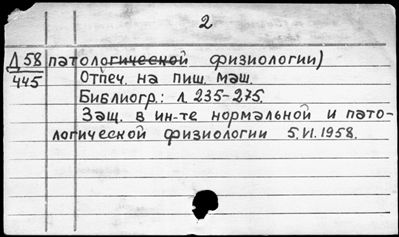 2
Д58 патологической физиологии)
445 Отпеч. на пиш. маш.
Библиогр.: л. 235-275.
Защ. в ин-те нормальной и пато-
логической физиологии 5.VI.1958.